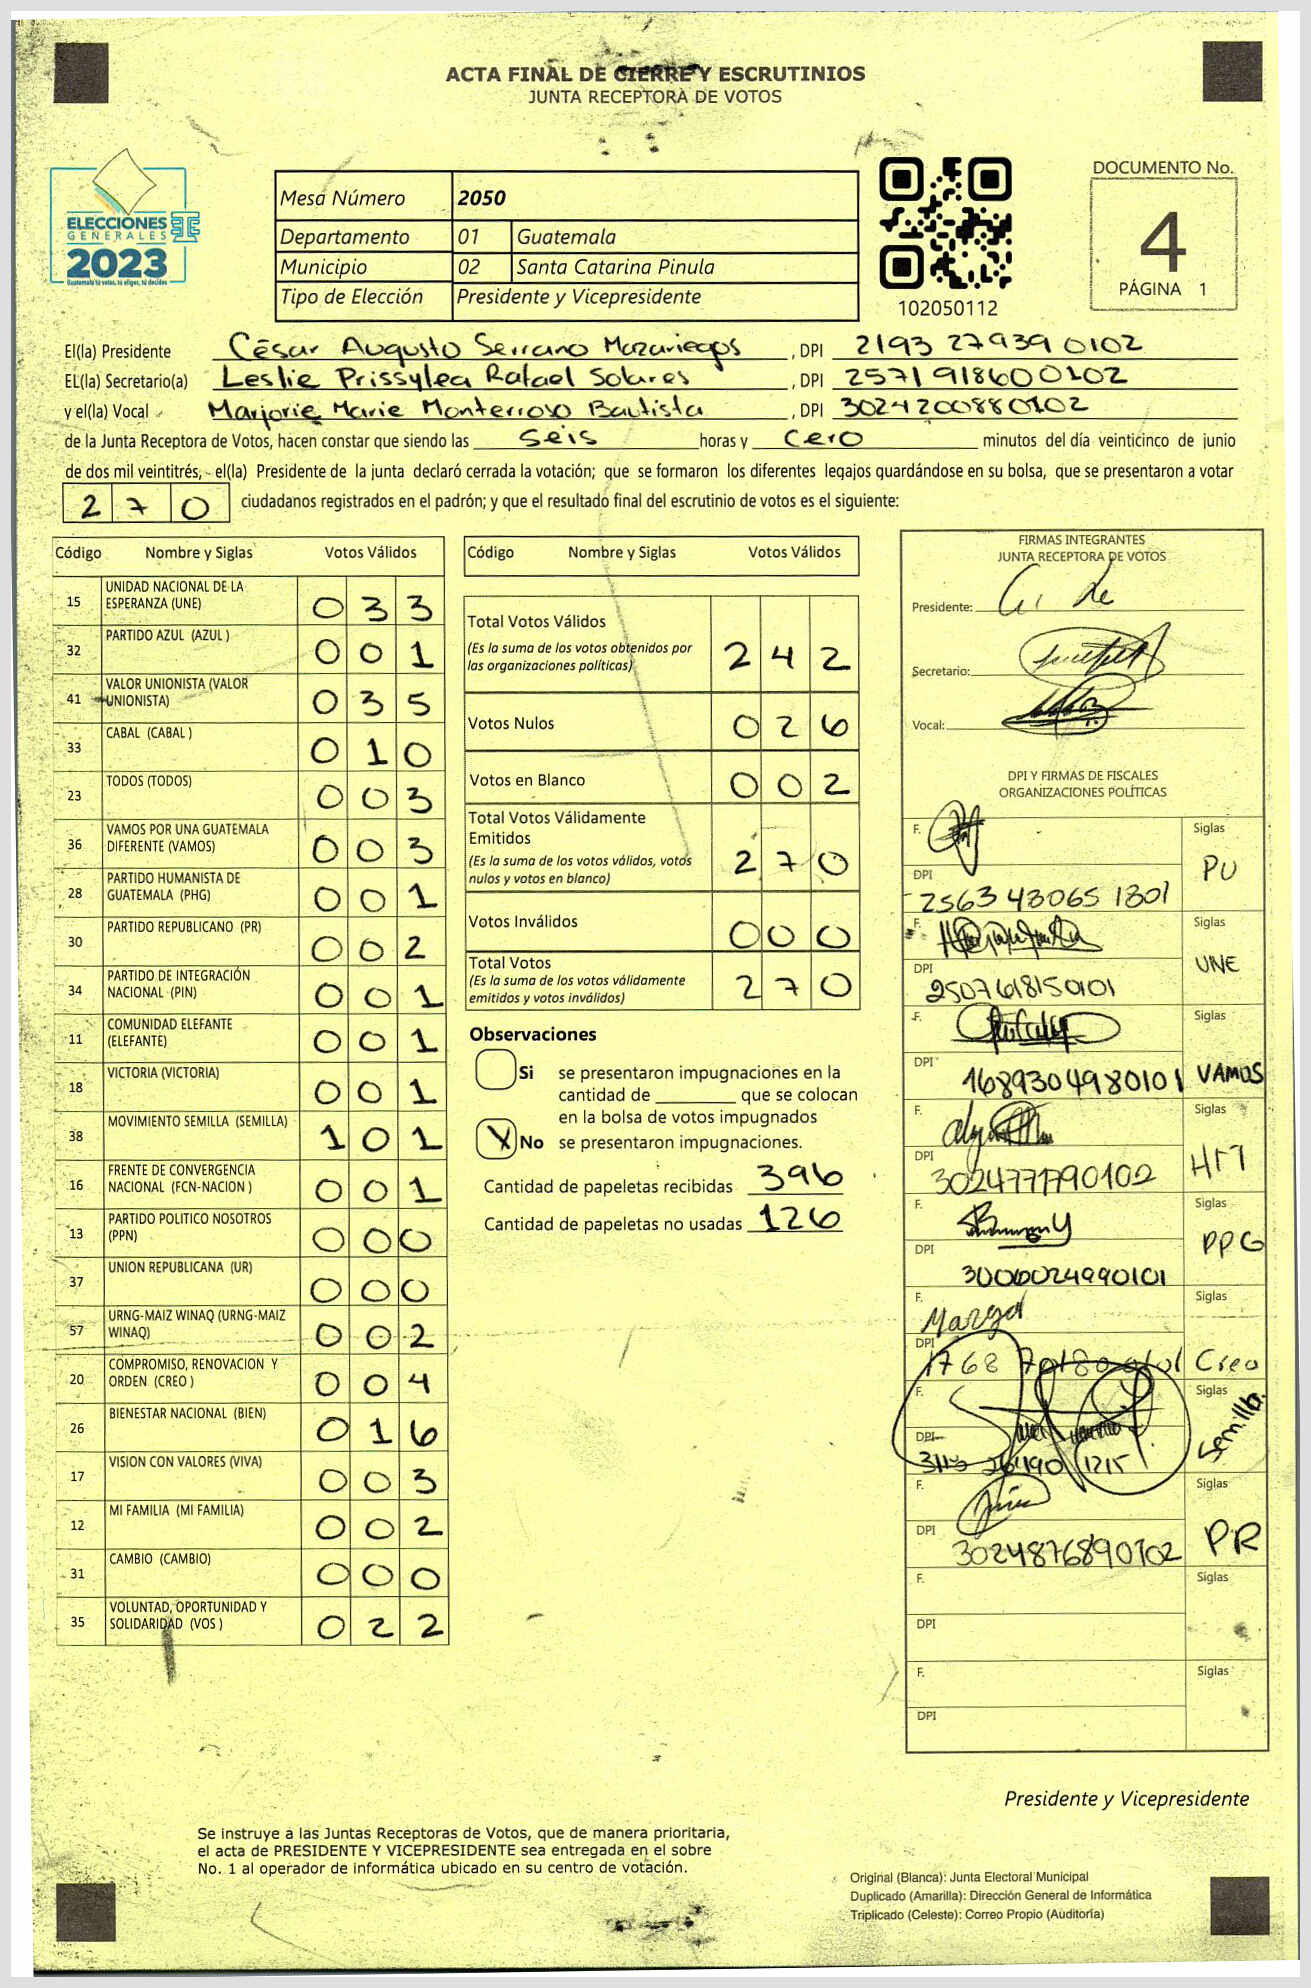 ACTA FINAL DE CIERRE Y ESCRUTINIOS
JUNTA RECEPTORA DE VOTOS
ELECCIONES
GENERALES
2023
Guatemala tú votas, tú eliges, tú decides
Mesa Número 2050
Departamento 01 Guatemala
Municipio 02 Santa Catarina Pinula
Tipo de Elección Presidente y Vicepresidente
102050112
DOCUMENTO No.
4
PÁGINA 1
El(la) Presidente César Augusto Serrano Mazariegos, DPI 2193 27939 0102
EL(la) Secretario(a) Leslie Prissylea Rafael Solares, DPI 2571918600102
y el(la) Vocal Marjorie Marie Monterroso Bautista, DPI 3024200880102
de la Junta Receptora de Votos, hacen constar que siendo las seis horas y cero minutos del día veinticinco de junio
de dos mil veintitrés, el(la) Presidente de la junta declaró cerrada la votación; que se formaron los diferentes legajos guardándose en su bolsa, que se presentaron a votar
270 ciudadanos registrados en el padrón; y que el resultado final del escrutinio de votos es el siguiente:
Código Nombre y Siglas Votos Válidos
15 UNIDAD NACIONAL DE LA ESPERANZA (UNE) 033
32 PARTIDO AZUL (AZUL ) 001
41 VALOR UNIONISTA (VALOR UNIONISTA) 035
33 CABAL (CABAL ) 010
23 TODOS (TODOS) 003
36 VAMOS POR UNA GUATEMALA DIFERENTE (VAMOS) 003
28 PARTIDO HUMANISTA DE GUATEMALA (PHG) 001
30 PARTIDO REPUBLICANO (PR) 002
34 PARTIDO DE INTEGRACIÓN NACIONAL (PIN) 001
11 COMUNIDAD ELEFANTE (ELEFANTE) 001
18 VICTORIA (VICTORIA) 001
38 MOVIMIENTO SEMILLA (SEMILLA) 101
16 FRENTE DE CONVERGENCIA NACIONAL (FCN-NACION ) 001
13 PARTIDO POLITICO NOSOTROS (PPN) 000
37 UNION REPUBLICANA (UR) 000
57 URNG-MAIZ WINAQ (URNG-MAIZ WINAQ) 002
20 COMPROMISO, RENOVACION Y ORDEN (CREO ) 004
26 BIENESTAR NACIONAL (BIEN) 016
17 VISION CON VALORES (VIVA) 003
12 MI FAMILIA (MI FAMILIA) 002
31 CAMBIO (CAMBIO) 000
35 VOLUNTAD, OPORTUNIDAD Y SOLIDARIDAD (VOS ) 022
Código Nombre y Siglas Votos Válidos
Total Votos Válidos
(Es la suma de los votos obtenidos por las organizaciones políticas) 242
Votos Nulos 026
Votos en Blanco 002
Total Votos Válidamente Emitidos
(Es la suma de los votos válidos, votos nulos y votos en blanco) 270
Votos Inválidos 000
Total Votos
(Es la suma de los votos válidamente emitidos y votos inválidos) 270
Observaciones
Si se presentaron impugnaciones en la
cantidad de ________ que se colocan
en la bolsa de votos impugnados
X No se presentaron impugnaciones.
Cantidad de papeletas recibidas 396
Cantidad de papeletas no usadas 126
FIRMAS INTEGRANTES
JUNTA RECEPTORA DE VOTOS
Presidente:
Secretario:
Vocal:
DPI Y FIRMAS DE FISCALES
ORGANIZACIONES POLÍTICAS
F. Siglas PU
DPI 2563 43065 1301
F. Siglas UNE
DPI 2507618150101
F. Siglas VAMOS
DPI 1689304980101
F. Siglas
DPI 3024777790102
F. Siglas PPG
DPI 3006024990101
F. Siglas Creo
DPI
F. Siglas Semilla.
DPI
F. Siglas PR
DPI 3024876890102
F. Siglas
DPI
F. Siglas
DPI
Presidente y Vicepresidente
Se instruye a las Juntas Receptoras de Votos, que de manera prioritaria,
el acta de PRESIDENTE Y VICEPRESIDENTE sea entregada en el sobre
No. 1 al operador de informática ubicado en su centro de votación.
Original (Blanca): Junta Electoral Municipal
Duplicado (Amarilla): Dirección General de Informática
Triplicado (Celeste): Correo Propio (Auditoría)